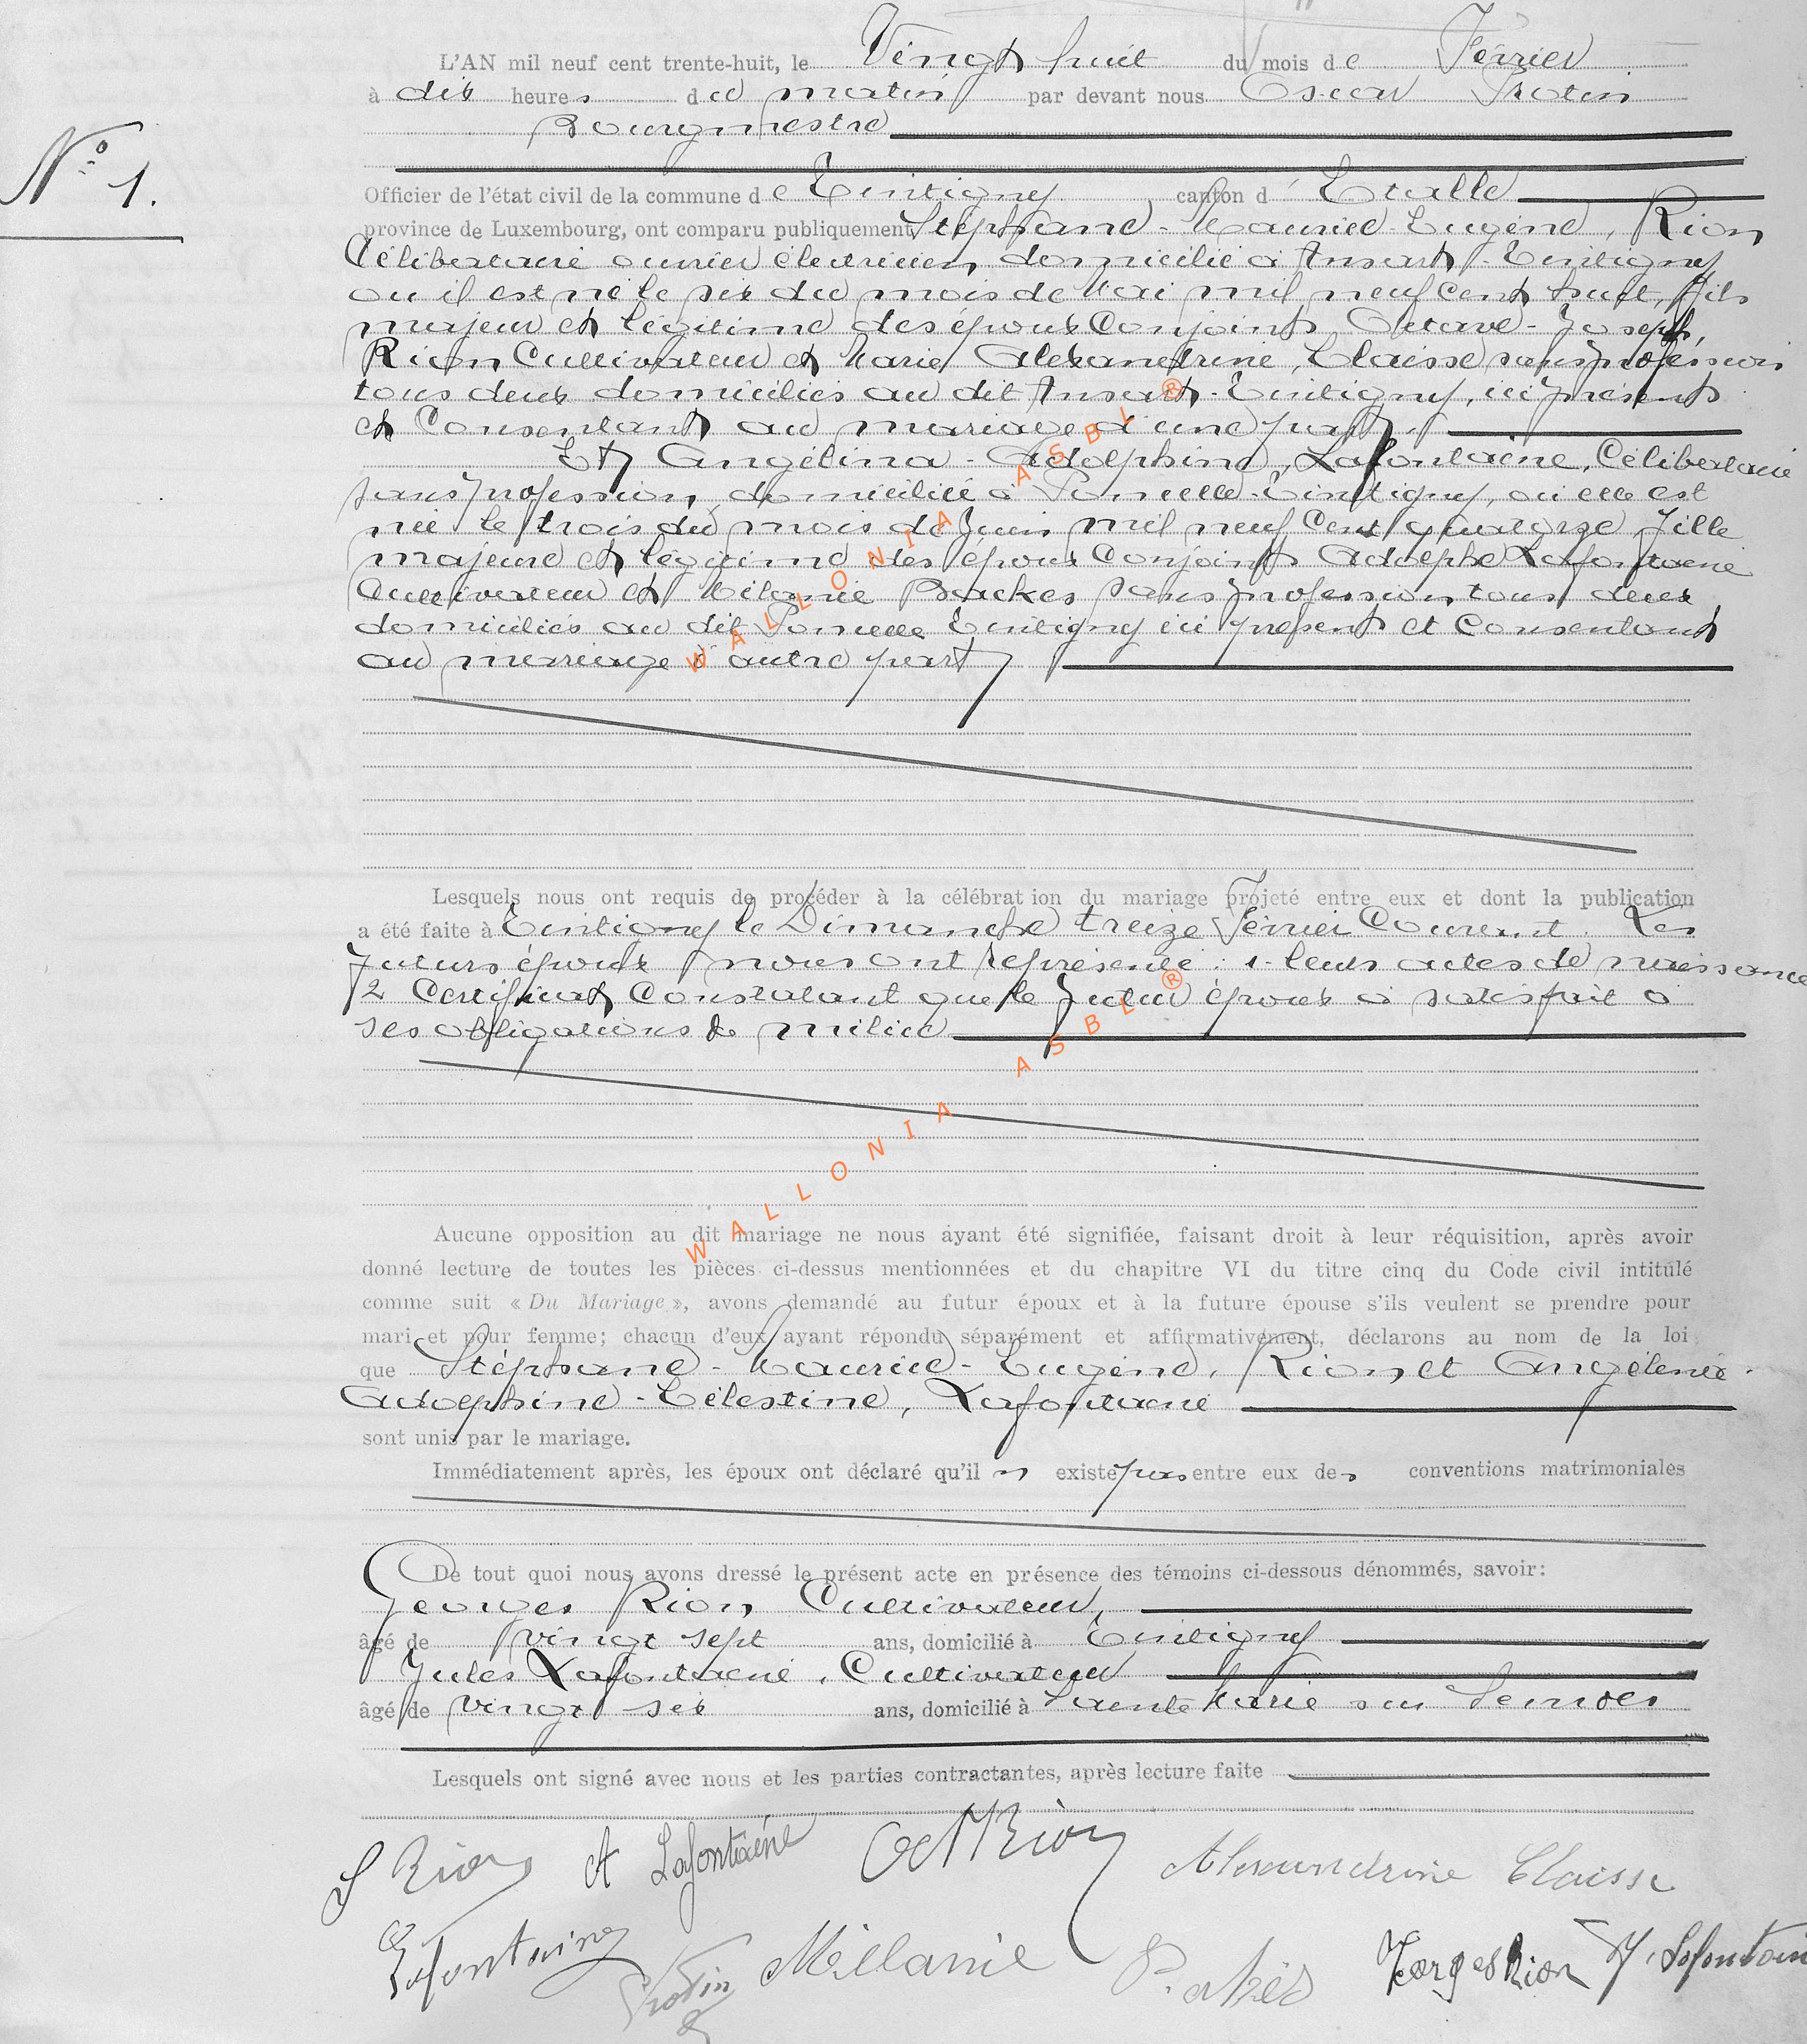 L'AN mil neuf cent trente-huit, le Vingt huit du mois de Février
à dix heures du matin par devant nous Oscar Protin
Bourgmestre
N° 1.
Officier de l'état civil de la commune de Tintigny canton d'Etalle
province de Luxembourg, ont comparu publiquement Stéphane-Maurice-Eugène, Rion
Célibataire ouvrier électricien domicilié à Ansart-Tintigny
ou il est né le six du mois de Mai mil neuf cent huit, fils
majeur et légitime des époux Conjoints Octave-Joseph,
Rion Cultivateur et Marie Alexandrine, Claisse sans profession
tous deux domiciliés au dit Ansart-Tintigny, ici présents
et Consentant au mariage d'une part,
Et Angélina-Adolphine, Lafontaine, Célibataire
sans profession, domiciliée à Poncelle-Tintigny, où elle est
née le trois du mois de Juin mil neuf Cent quatorze, fille
majeure et légitime des époux Conjoints Adolphe Lafontaine
Cultivateur et Mélanie Backes sans profession tous deux
domiciliés au dit Poncelle Tintigny ici présents et Consentants
au mariage d'autre part
Lesquels nous ont requis de procéder à la célébration du mariage projeté entre eux et dont la publication
a été faite à Tintigny le Dimanche treize Février Courant. Les
futurs époux nous ont représenté : 1- leurs actes de naissance
2 Certificat Constatant que le futur époux a satisfait à
ses obligations de milice
Aucune opposition au dit mariage ne nous ayant été signifiée, faisant droit à leur réquisition, après avoir
donné lecture de toutes les pièces ci-dessus mentionnées et du chapitre VI du titre cinq du Code civil intitulé
comme suit « Du Mariage », avons demandé au futur époux et à la future épouse s'ils veulent se prendre pour
mari et pour femme; chacun d'eux ayant répondu séparément et affirmativement, déclarons au nom de la loi
que Stéphane-Maurice-Eugène, Rion et Angélina-
Adolphine-Célestine, Lafontaine
sont unis par le mariage.
Immédiatement après, les époux ont déclaré qu'il n existe pas entre eux des conventions matrimoniales
De tout quoi nous avons dressé le présent acte en présence des témoins ci-dessous dénommés, savoir:
Georges Rion Cultivateur,
âgé de vingt sept ans, domicilié à Tintigny
Jules Lafontaine, Cultivateur
âgé de vingt six ans, domicilié à Sainte Marie sur Semois
Lesquels ont signé avec nous et les parties contractantes, après lecture faite
S Rion A Lafontaine Oct Rion Alexandrine Claisse
Lafontaine Protin Méllanie Georges Rion J. Lafontaine
WALLONIA ASBL ®
WALLONIA ASBL ®